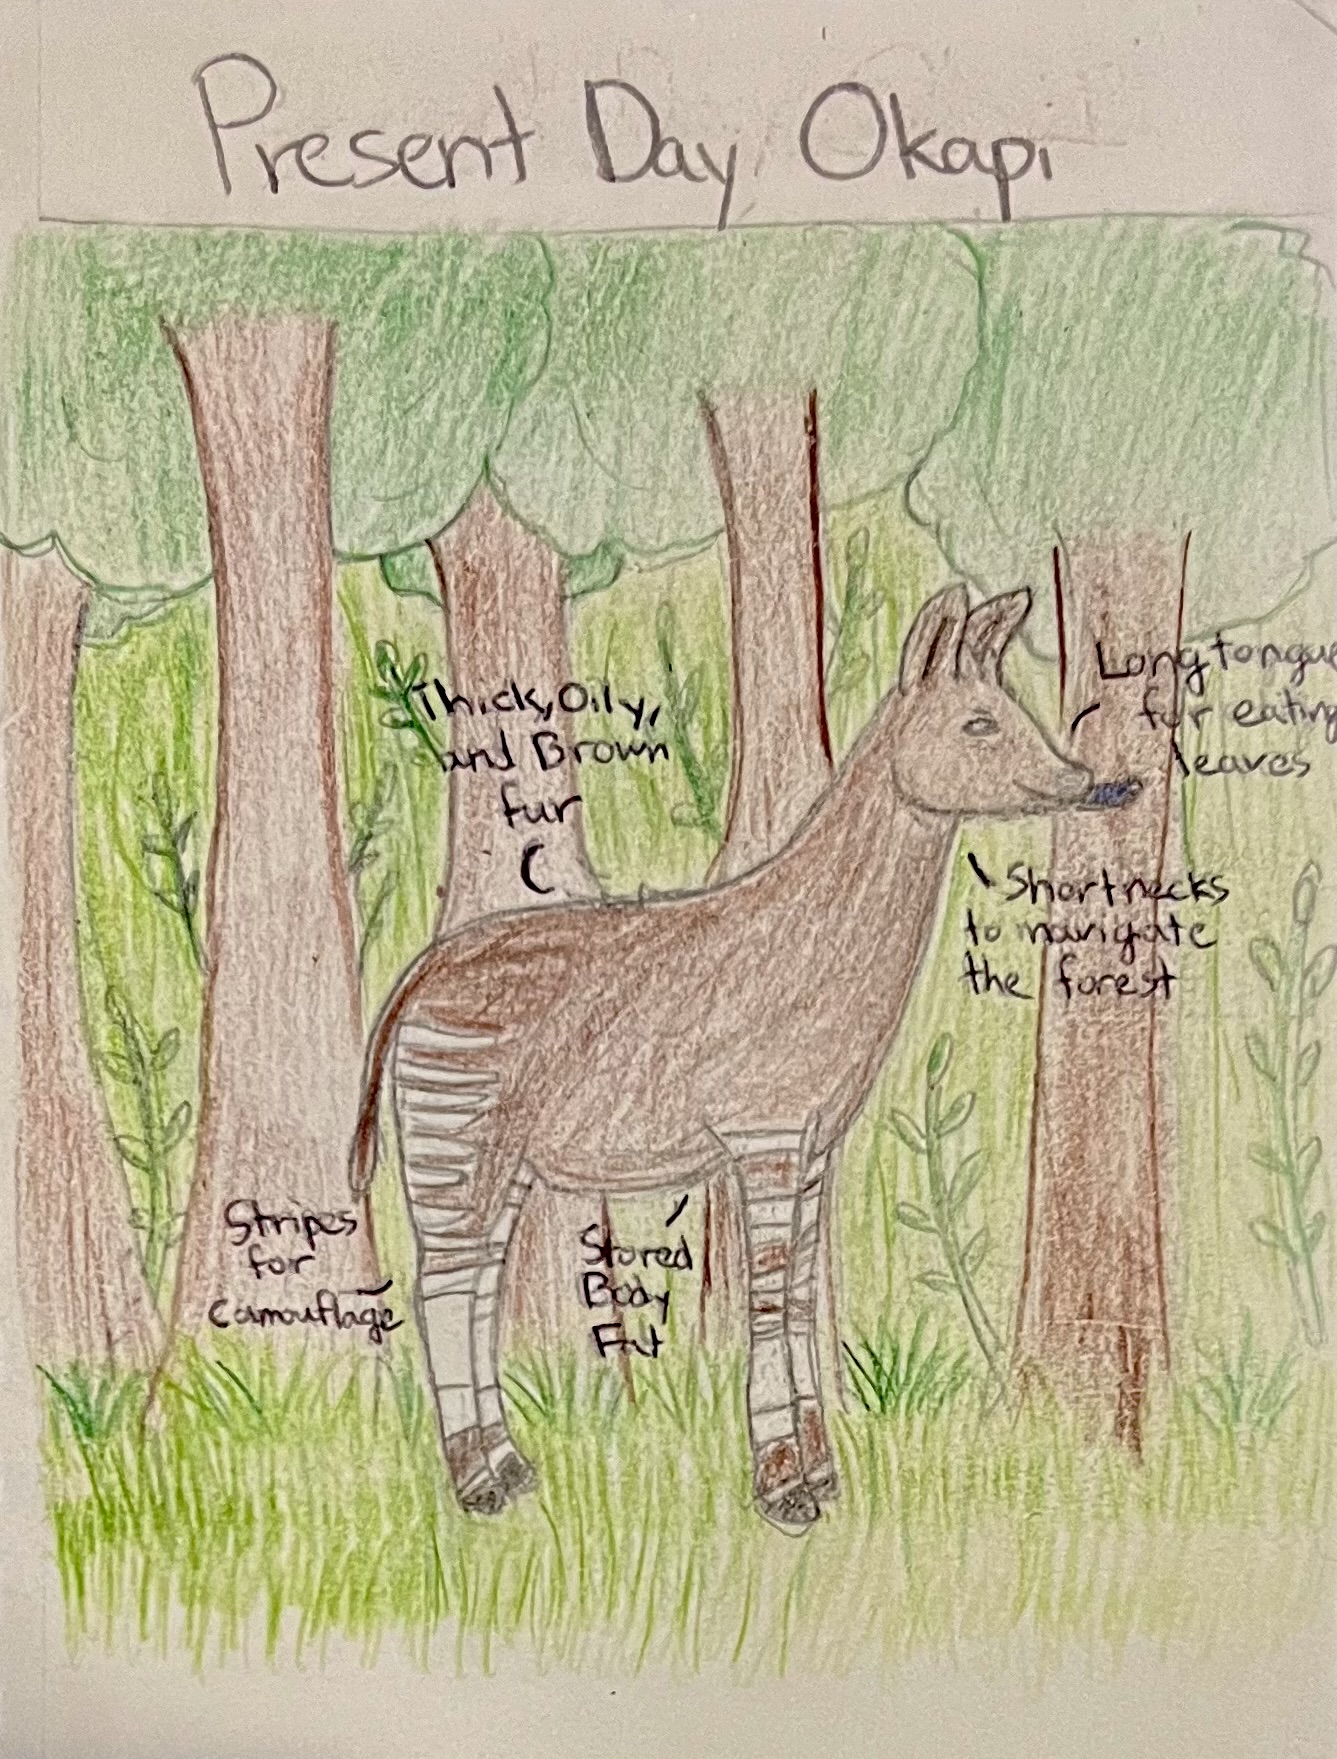 Present Day Okapi
Thick, Oily,
and Brown
fur
Long tongue
for eating
leaves
Short necks
to navigate
the forest
Stripes
for
Camouflage
Stored
Body
Fat